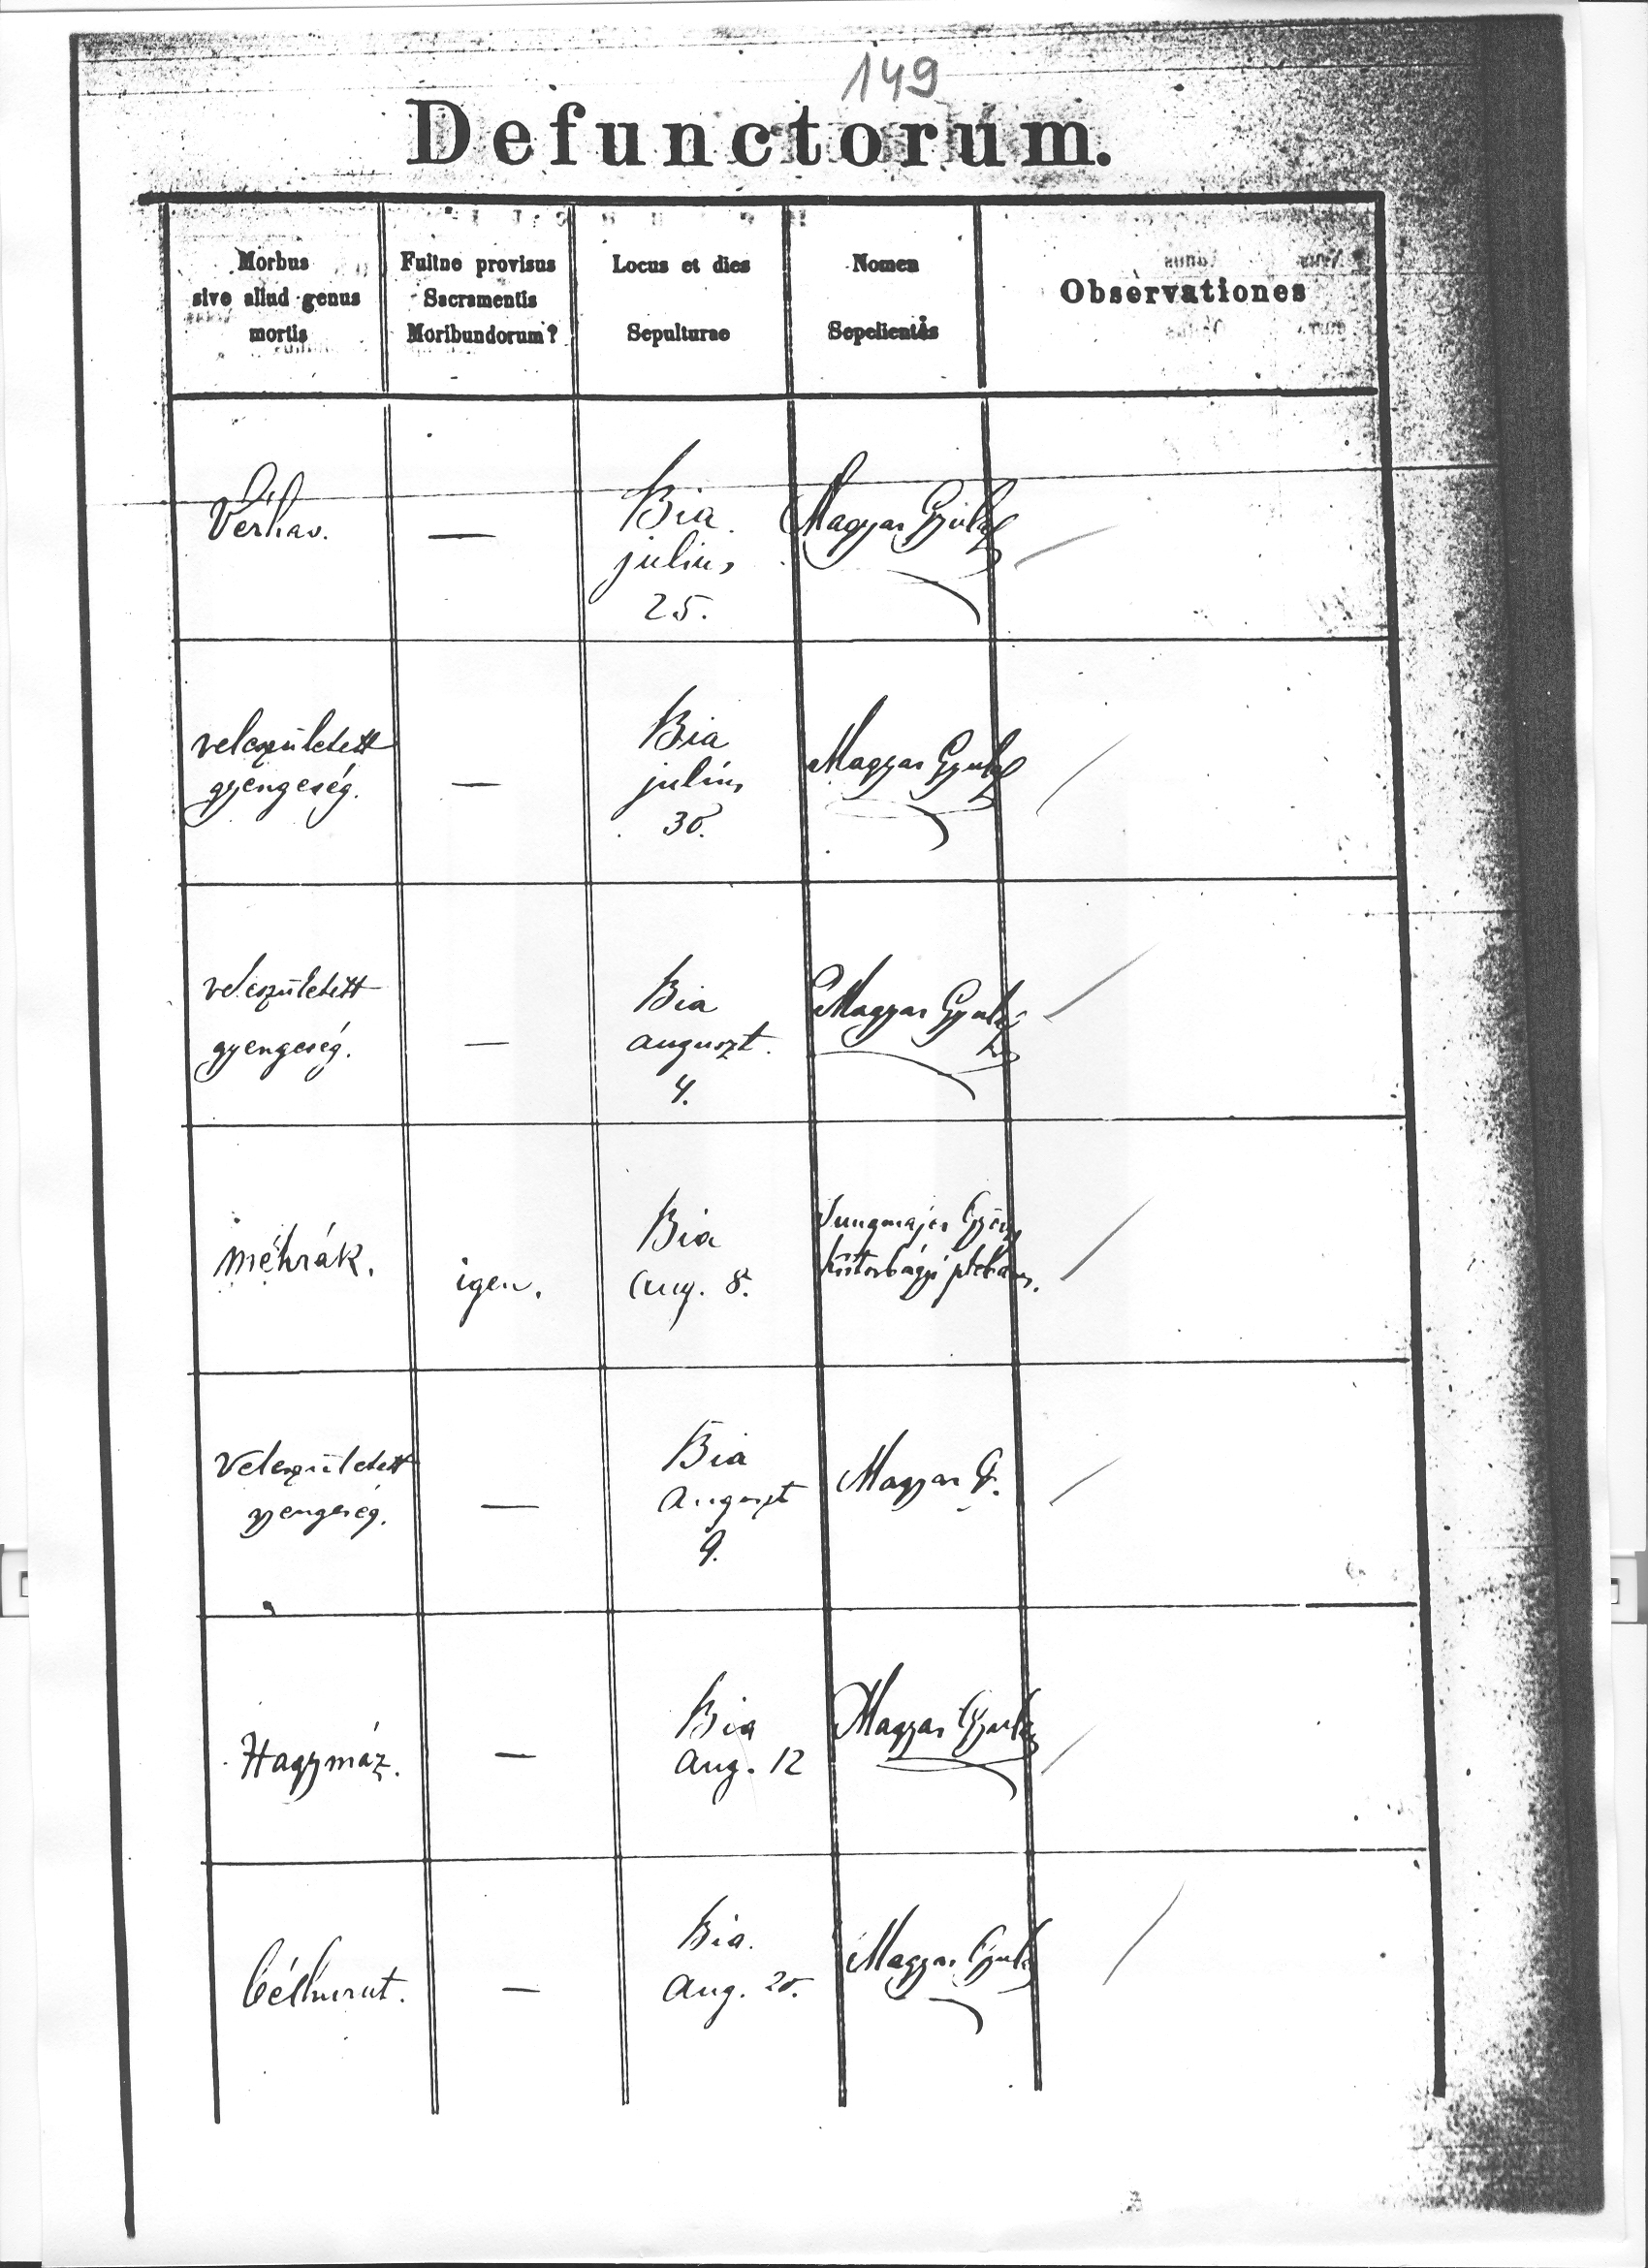 149
Defunctorum.
Morbus
sive aliud genus
mortis
Fuitne provisus
Sacramentis
Moribundorum?
Locus et dies
Sepulturae
Nomen
Sepelientis
Observationes
Vérhas.
—
Bia
julius
25.
Magyar Gyula
veleszületett
gyengeség.
—
Bia
julius
30.
Magyar Gyula
veleszületett
gyengeség.
—
Bia
auguszt.
4.
Magyar Gyula
méhrák.
igen.
Bia
Aug. 8.
Jungmajer György
plebános.
Veleszületett
gyengeség.
—
Bia
Auguszt
9.
Magyar G.
Hagymáz.
—
Bia
Aug. 12
Magyar Gyula
bélhurut.
—
Bia.
Aug. 20.
Magyar Gyula